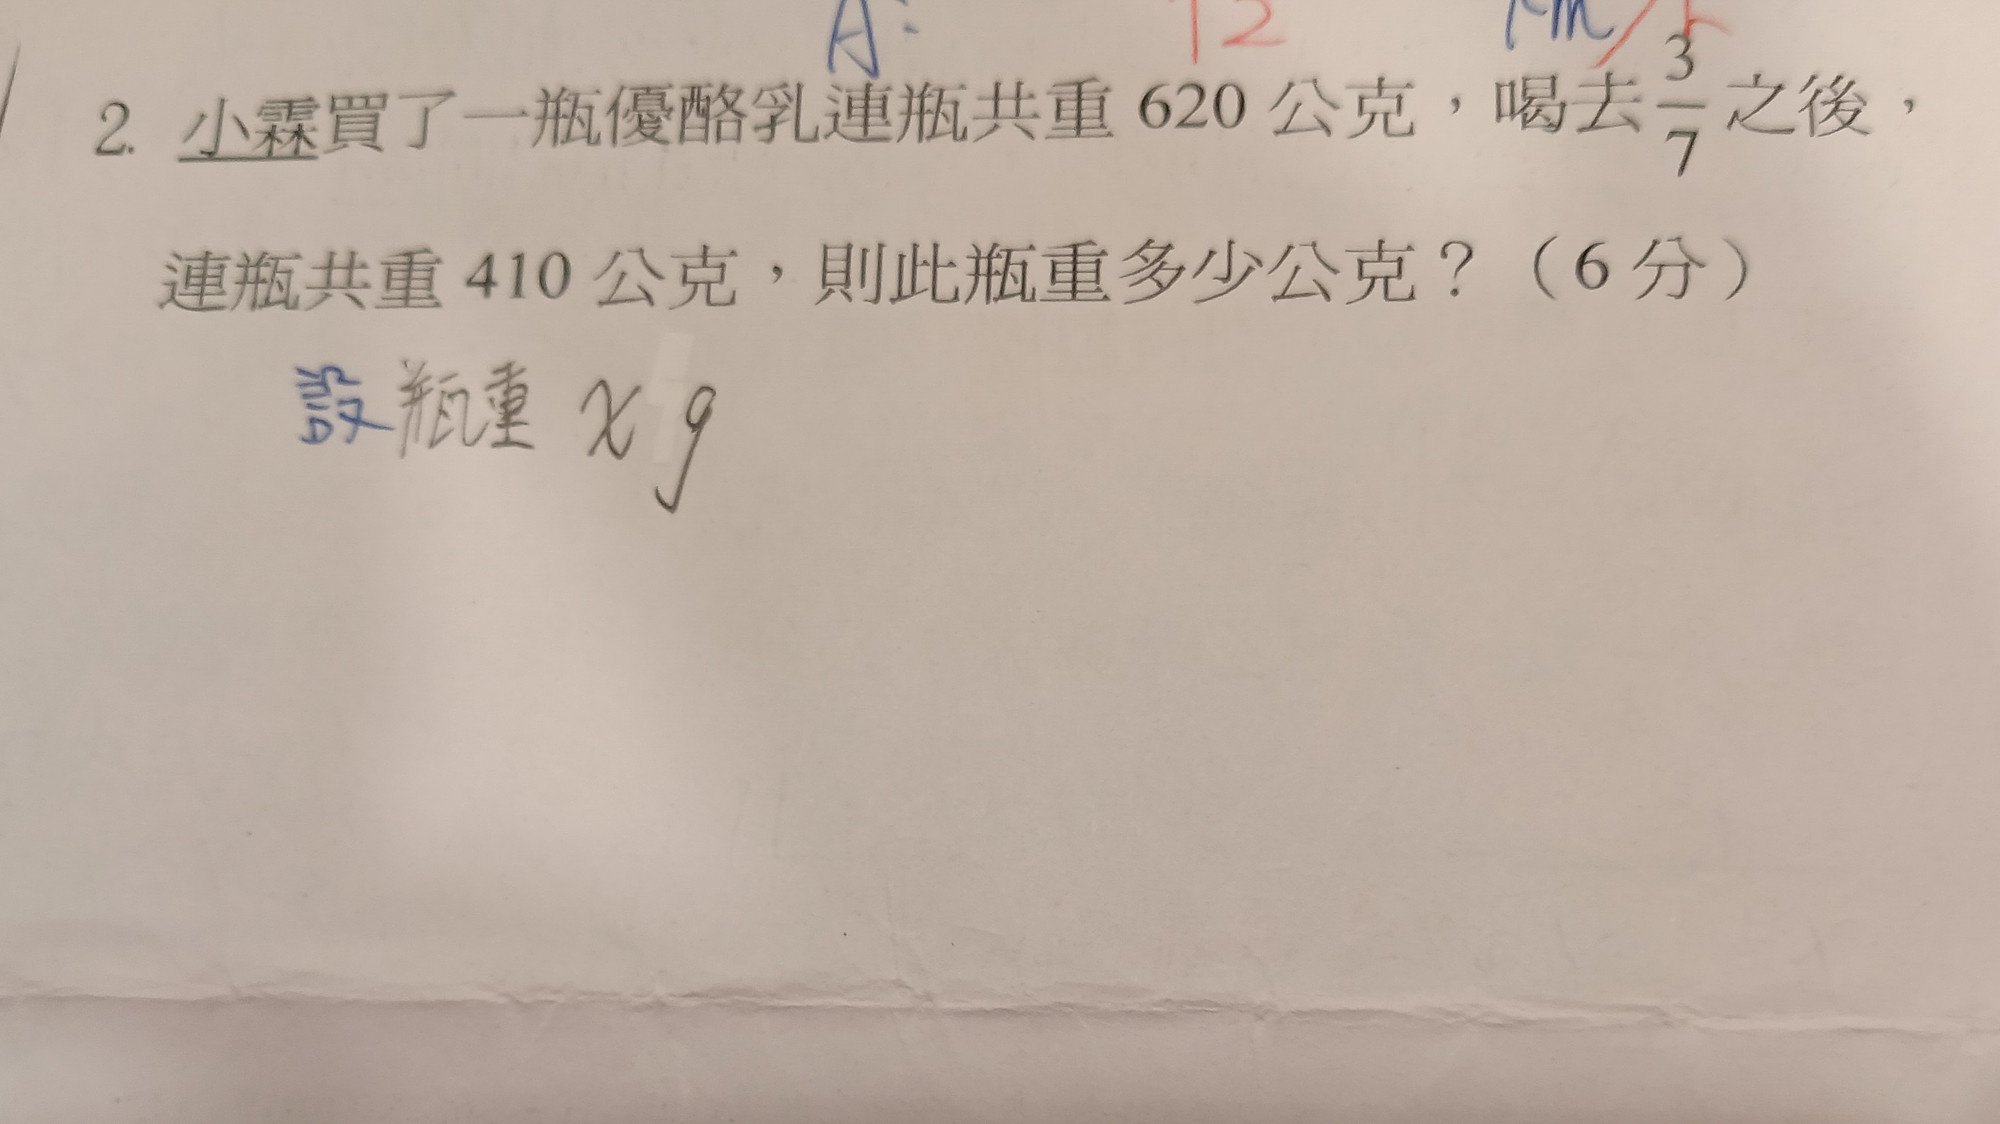 A:
12
2. 小霖買了一瓶優酪乳連瓶共重 620 公克，喝去3/7之後，
連瓶共重 410 公克，則此瓶重多少公克？（6 分）
設瓶重 x g